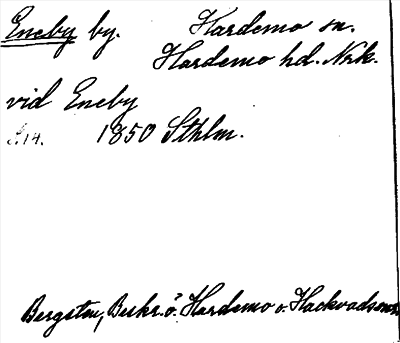 Eneby by. Hardemo sn.
Hardemo hd. Nrk.
vid Eneby
S.14. 1850 Sthlm.
Bergstm, Beskr. ö. Hardemo o. Hackvads